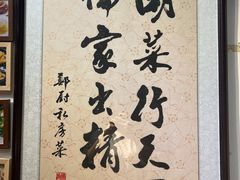 湖菜行天
儒家出精
鄭尉私房菜